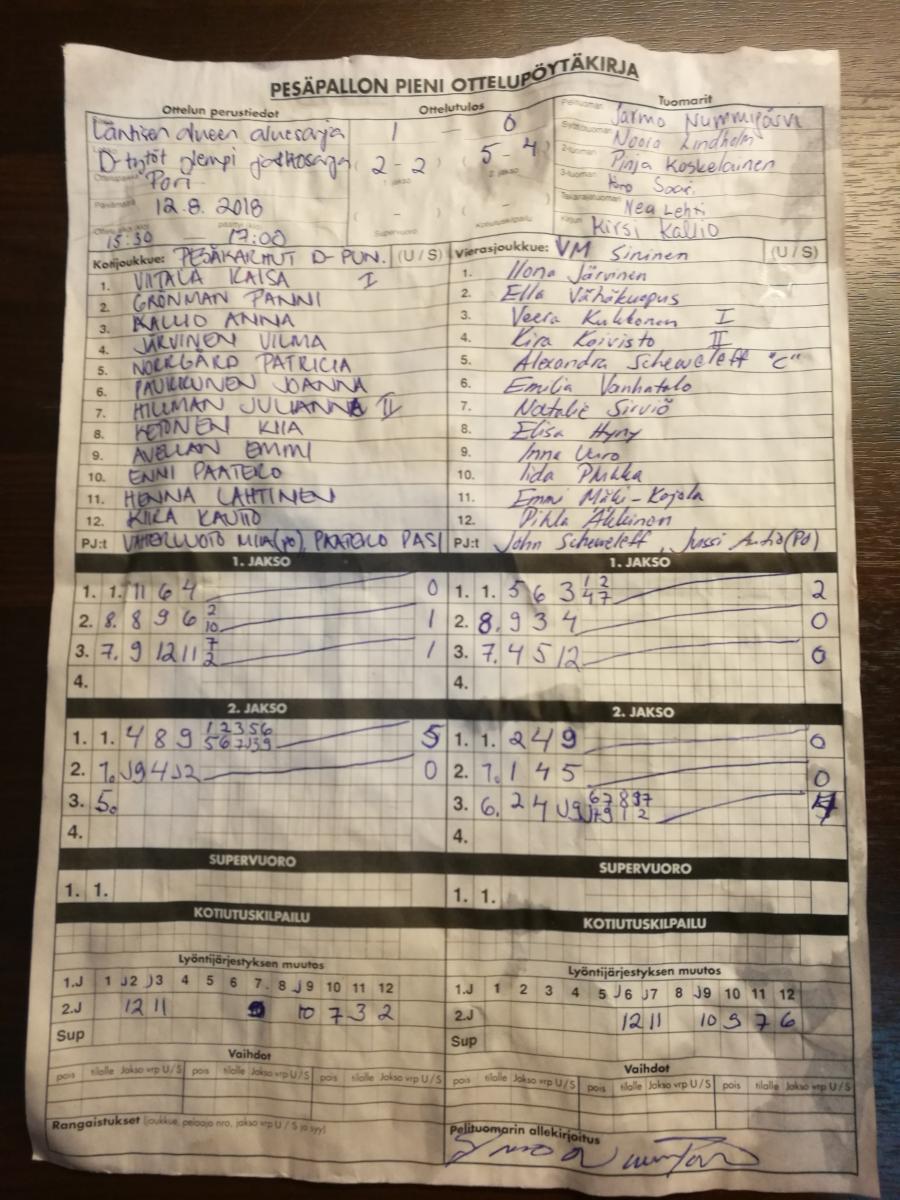 PESÄPALLON PIENI OTTELUPÖYTÄKIRJA
Ottelun perustiedot
Ottelutulos
Tuomarit
Läntisen alueen aluesarja
D-tytöt ylempi jatkosarja
Pori
Päivämäärä 12.8.2018
15:30 — 17:00
1 — 0
2-2 5-4
1. jakso 2. jakso
Supervuoro Kotiutuskilpailu
Pelituomari Jarmo Nummijärvi
Syöttötuomari Noora Lindholm
2-tuomari Pinja Koskelainen
3-tuomari Saari
Takarajatuomari Nea Lehti
Kirjuri Kirsi Kallio
Kotijoukkue: PESÄKARHUT D-PUN. (U / S)
1. VIITALA KAISA I
2. GRÖNMAN PANNI
3. KALLIO ANNA
4. JÄRVINEN VILMA
5. NORRGÅRD PATRICIA
6. PAUKKUNEN JOANNA
7. HILLMAN JULIANNA II
8. KETONEN KIIA
9. AVELLAN EMMI
10. ENNI PAATERO
11. HENNA LAHTINEN
12. KIIRA KAUTTO
PJ:t VAHTERLUOTO MIIA(PO), PAATERO PASI
Vierasjoukkue: VM Sininen (U / S)
1. Ilona Järvinen
2. Ella Vähäkuopus
3. Veera Kukkonen I
4. Kira Koivisto II
5. Alexandra Scheweleff "C"
6. Emilia Vanhatalo
7. Natalie Sirviö
8. Elisa Hyny
9. Inna Uuro
10. Iida Pukka
11. Emmi Mäki-Kojola
12. Pihla Äkkinen
PJ:t John Scheweleff, Jussi Autio(PJ)
1. JAKSO
1. 1. 11 6 4 0
2. 8. 8 9 6 2 10 1
3. 7. 9 12 11 7 2 1
4.
2. JAKSO
1. 1. 4 8 9 1 2 3 5 6 5 6 7 J3 9 5
2. 7. J9 4 J2 0
3. 5.
4.
SUPERVUORO
1. 1.
KOTIUTUSKILPAILU
Lyöntijärjestyksen muutos
1.J 1 J2 J3 4 5 6 7 8 J9 10 11 12
2.J 12 11 10 7 3 2
Sup
Vaihdot
pois tilalle Jakso vrp U/S pois tilalle Jakso vrp U/S pois tilalle Jakso vrp U/S
Rangaistukset (joukkue, pelaaja nro, jakso vrp U / S ja syy)
1. JAKSO
1. 1. 5 6 3 1 2 4 7 2
2. 8. 9 3 4 0
3. 7. 4 5 12 0
4.
2. JAKSO
1. 1. 2 4 9 0
2. 7. 1 4 5 0
3. 6. 2 4 J9 6 7 8 9 7 4
4.
SUPERVUORO
1. 1.
KOTIUTUSKILPAILU
Lyöntijärjestyksen muutos
1.J 1 2 3 4 5 J6 J7 8 J9 10 11 12
2.J 12 11 10 9 7 6
Sup
Vaihdot
pois tilalle Jakso vrp U/S pois tilalle Jakso vrp U/S pois tilalle Jakso vrp U/S
Pelituomarin allekirjoitus